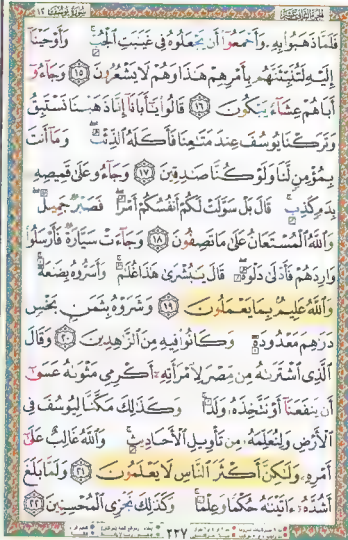 سُورَةُ يُوسُفَ ١٢
فَلَمَّا ذَهَبُوا۟ بِهِۦ وَأَجْمَعُوٓا۟ أَن يَجْعَلُوهُ فِى غَيَـٰبَتِ ٱلْجُبِّ وَأَوْحَيْنَآ
إِلَيْهِ لَتُنَبِّئَنَّهُم بِأَمْرِهِمْ هَـٰذَا وَهُمْ لَا يَشْعُرُونَ ١٥ وَجَآءُوٓ
أَبَاهُمْ عِشَآءً يَبْكُونَ ١٦ قَالُوا۟ يَـٰٓأَبَانَآ إِنَّا ذَهَبْنَا نَسْتَبِقُ
وَتَرَكْنَا يُوسُفَ عِندَ مَتَـٰعِنَا فَأَكَلَهُ ٱلذِّئْبُ وَمَآ أَنتَ
بِمُؤْمِنٍ لَّنَا وَلَوْ كُنَّا صَـٰدِقِينَ ١٧ وَجَآءُو عَلَىٰ قَمِيصِهِۦ
بِدَمٍ كَذِبٍ قَالَ بَلْ سَوَّلَتْ لَكُمْ أَنفُسُكُمْ أَمْرًا فَصَبْرٌ جَمِيلٌ
وَٱللَّهُ ٱلْمُسْتَعَانُ عَلَىٰ مَا تَصِفُونَ ١٨ وَجَآءَتْ سَيَّارَةٌ فَأَرْسَلُوا۟
وَارِدَهُمْ فَأَدْلَىٰ دَلْوَهُۥ قَالَ يَـٰبُشْرَىٰ هَـٰذَا غُلَـٰمٌ وَأَسَرُّوهُ بِضَـٰعَةً
وَٱللَّهُ عَلِيمٌۢ بِمَا يَعْمَلُونَ ١٩ وَشَرَوْهُ بِثَمَنٍۭ بَخْسٍ
دَرَٰهِمَ مَعْدُودَةٍ وَكَانُوا۟ فِيهِ مِنَ ٱلزَّٰهِدِينَ ٢٠ وَقَالَ
ٱلَّذِى ٱشْتَرَىٰهُ مِن مِّصْرَ لِٱمْرَأَتِهِۦٓ أَكْرِمِى مَثْوَىٰهُ عَسَىٰٓ
أَن يَنفَعَنَآ أَوْ نَتَّخِذَهُۥ وَلَدًا وَكَذَٰلِكَ مَكَّنَّا لِيُوسُفَ فِى
ٱلْأَرْضِ وَلِنُعَلِّمَهُۥ مِن تَأْوِيلِ ٱلْأَحَادِيثِ وَٱللَّهُ غَالِبٌ عَلَىٰٓ
أَمْرِهِۦ وَلَـٰكِنَّ أَكْثَرَ ٱلنَّاسِ لَا يَعْلَمُونَ ٢١ وَلَمَّا بَلَغَ
أَشُدَّهُۥٓ ءَاتَيْنَـٰهُ حُكْمًا وَعِلْمًا وَكَذَٰلِكَ نَجْزِى ٱلْمُحْسِنِينَ ٢٢
٢٣٧